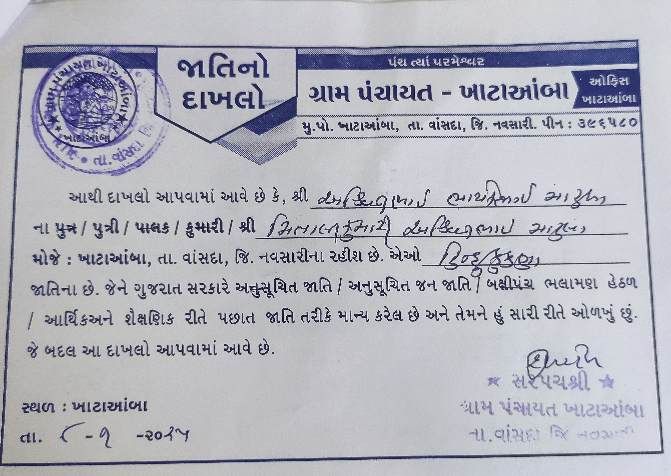 જાતિનો
દાખલો
પંચ ત્યાં પરમેશ્વર
ગ્રામ પંચાયત - ખાટાઆંબા
ઓફિસ
ખાટાઆંબા
મુ.પો. ખાટાઆંબા, તા. વાંસદા, જિ. નવસારી. પીન : ૩૯૬૫૮૦
ગ્રામ પંચાયત ખાટાઆંબા
ખાટાઆંબા
તા. વાંસદા જિ
આથી દાખલો આપવામાં આવે છે કે, શ્રી
ના પુત્ર / પુત્રી / પાલક / કુમારી / શ્રી
મોજે : ખાટાઆંબા, તા. વાંસદા, જિ. નવસારીના રહીશ છે. એઓ હિન્દુ કુકણા
જાતિના છે. જેને ગુજરાત સરકારે અનુસૂચિત જાતિ / અનુસૂચિત જન જાતિ / બક્ષીપંચ ભલામણ હેઠળ
/ આર્થિકઅને શૈક્ષણિક રીતે પછાત જાતિ તરીકે માન્ય કરેલ છે અને તેમને હું સારી રીતે ઓળખું છું.
જે બદલ આ દાખલો આપવામાં આવે છે.
સરપંચશ્રી
સ્થળ : ખાટાઆંબા
ગ્રામ પંચાયત ખાટાઆંબા
તા. ૮-૧ -૨૦૧૫
તા.વાંસદા જિ નવસારી